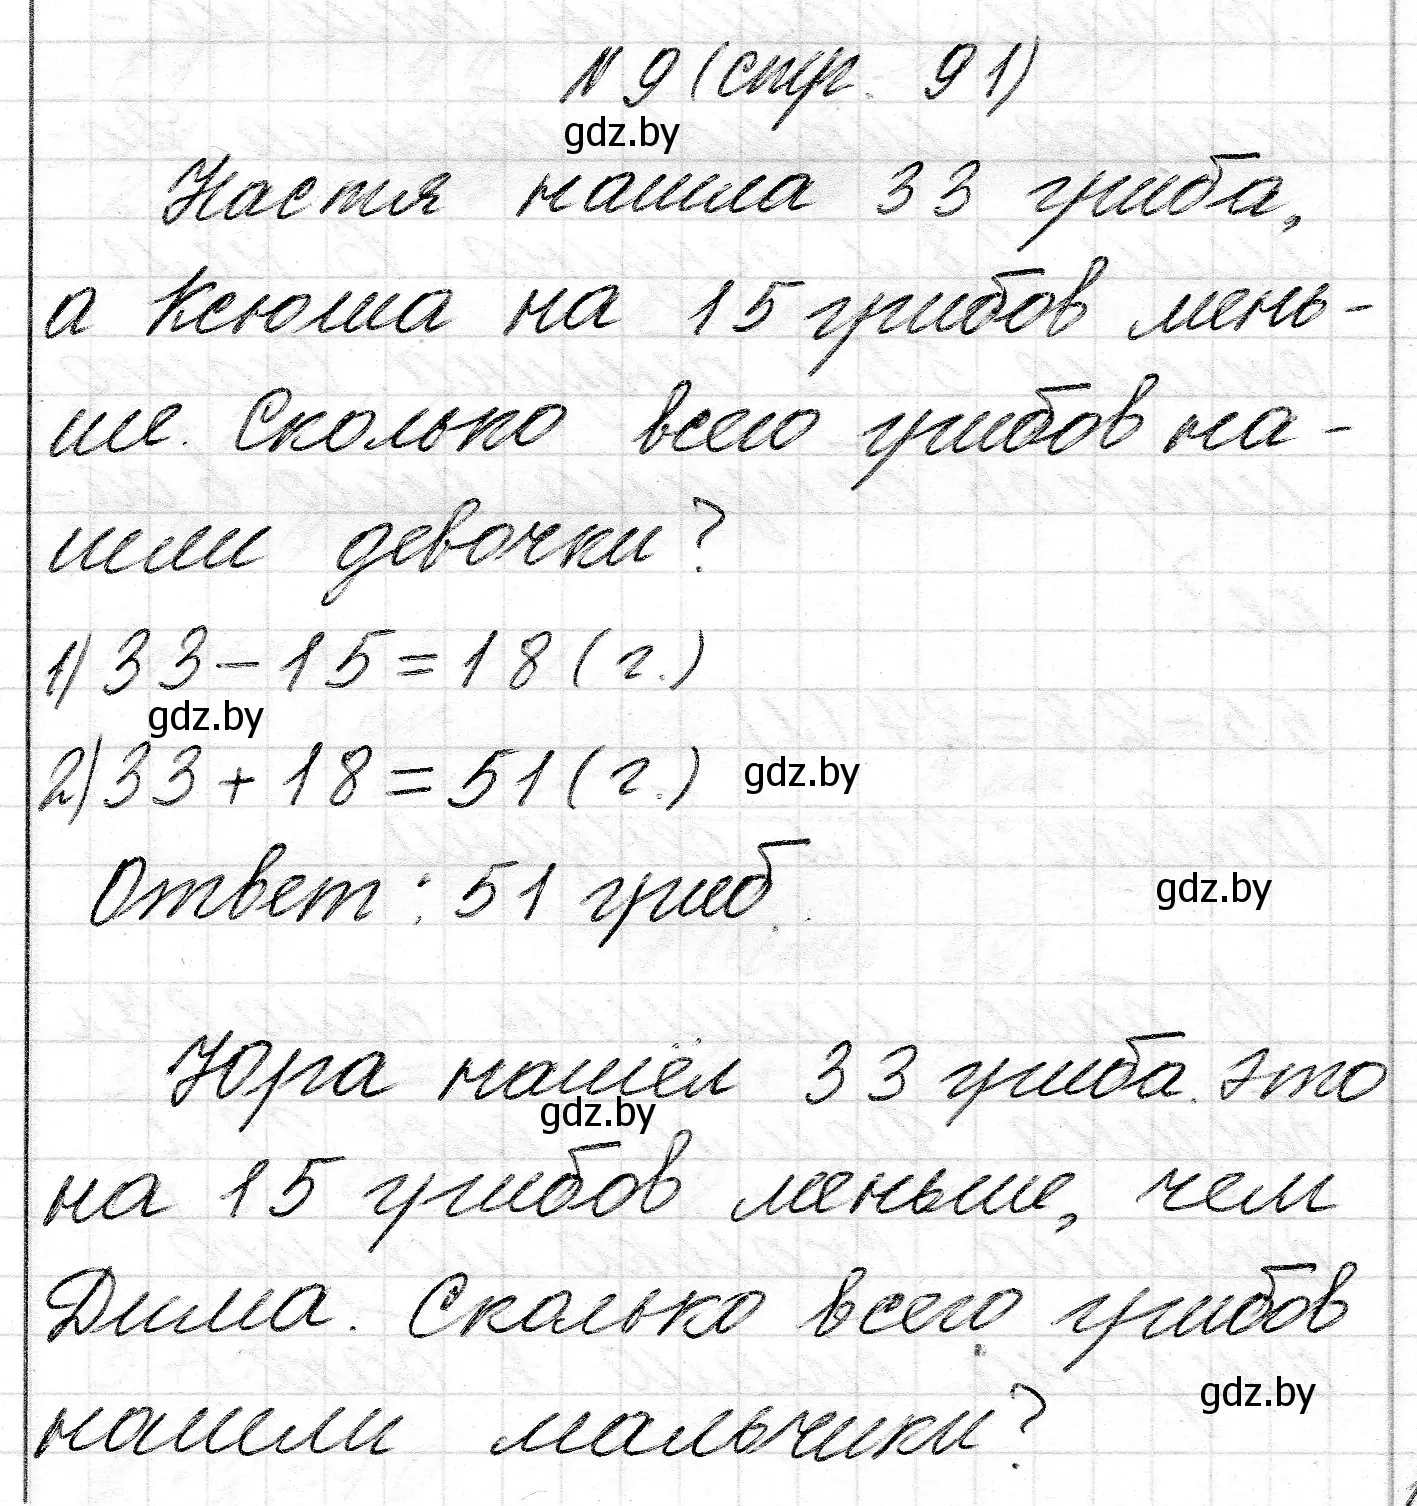 № 9 (стр. 91)
gdz.by
Настя нашла 33 гриба,
а Ксюша на 15 грибов мень-
ше. Сколько всего грибов на-
шли девочки?
1) 33 - 15 = 18 (г.)
gdz.by
2) 33 + 18 = 51 (г.)
gdz.by
Ответ: 51 гриб.
gdz.by
Юра нашёл 33 гриба. Это
gdz.by
на 15 грибов меньше, чем
Дима. Сколько всего грибов
gdz.by
нашли мальчики?